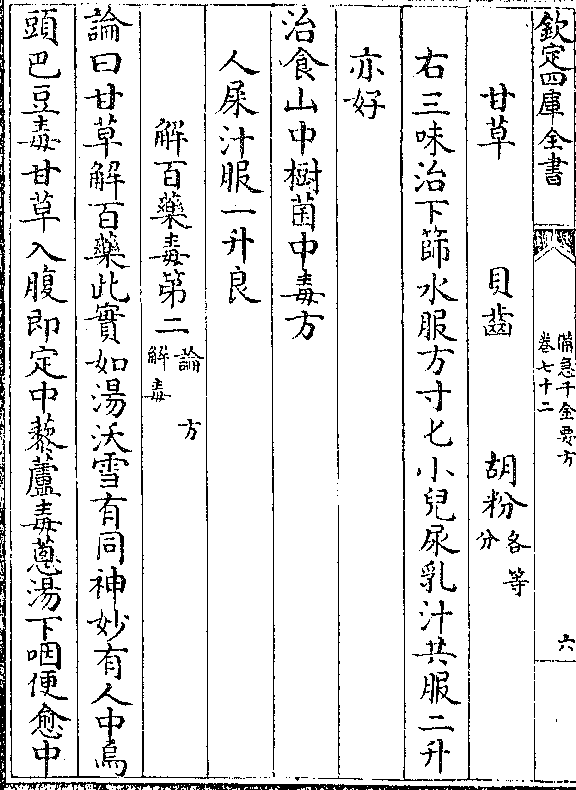 欽定四庫全書
備急千金要方
卷七十二
六
甘草 貝齒 胡粉各等
分
右三味治下篩水服方寸匕小兒尿乳汁共服二升
亦好
治食山中樹菌中毒方
人屎汁服一升良
解百藥毒第二論 方
解毒
論曰甘草解百藥此實如湯沃雪有同神妙有人中烏
頭巴豆毒甘草入腹即定中藜蘆毒蔥湯下咽便愈中